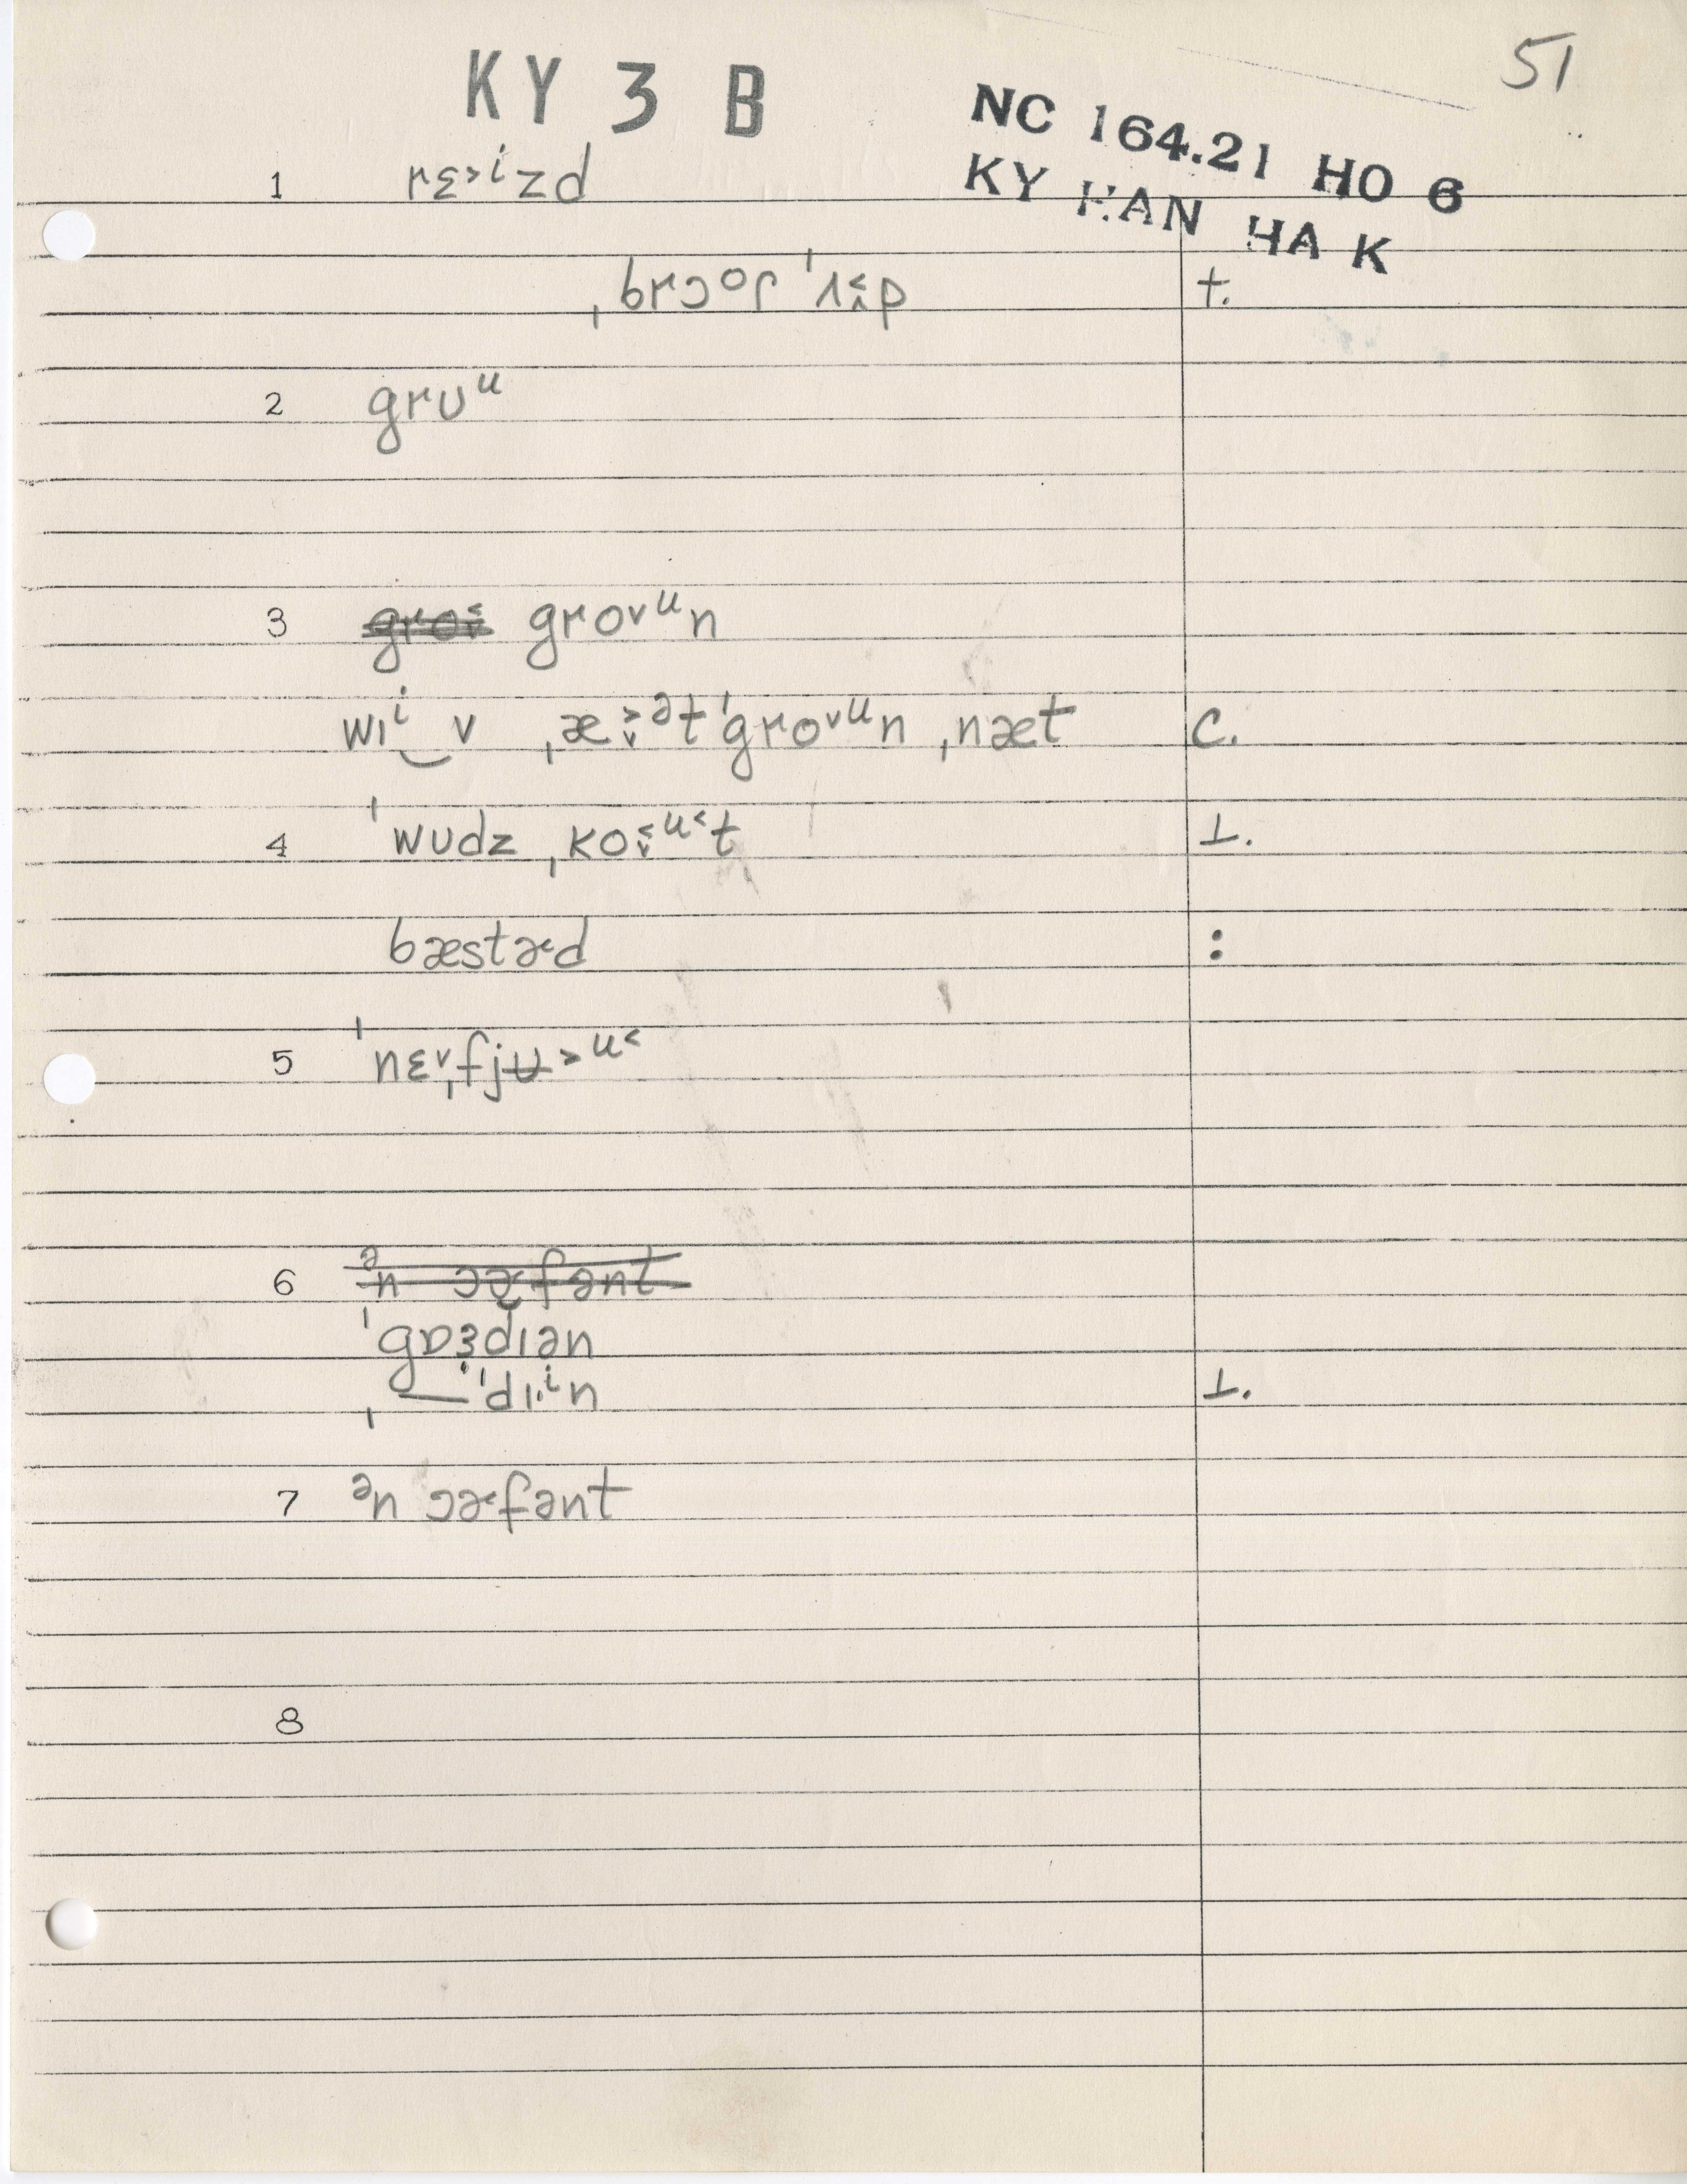 51
KY 3 B
NC 164.21 HO 6
KY HAN HA K
1 rɛ˃ⁱzd
t.
2 grʊᵘ
3 groᵛᵘn
wɪⁱ‿v ˌæ˃ᵊt ˈgroᵛᵘn ˌnæt C.
4 ˈwʊdz ˌko˂ᵘ˂t ⊥.
bæstɚd :
5 ˈnɛᵛˌfjʉ˃ᵘ˂
6 ᵊn ɔɚfənt
ˈgɒɜdɪən
ˌ—ˈdɪⁱn ⊥.
7 ᵊn ɔɚfənt
8